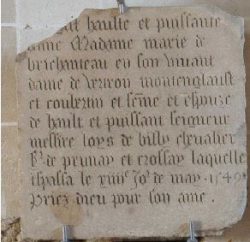 haulte et puissante
dame Madame marie de
brichanteau en son vivant
dame de vertron montenglaust
et coubertin et feme et espouze
de hault et puissant seigneur
messire loys de billy chevalier
sr de prunay et crossay laquelle
tspassa le xiiiie Jor de may . 1549
Priez dieu pour son ame .